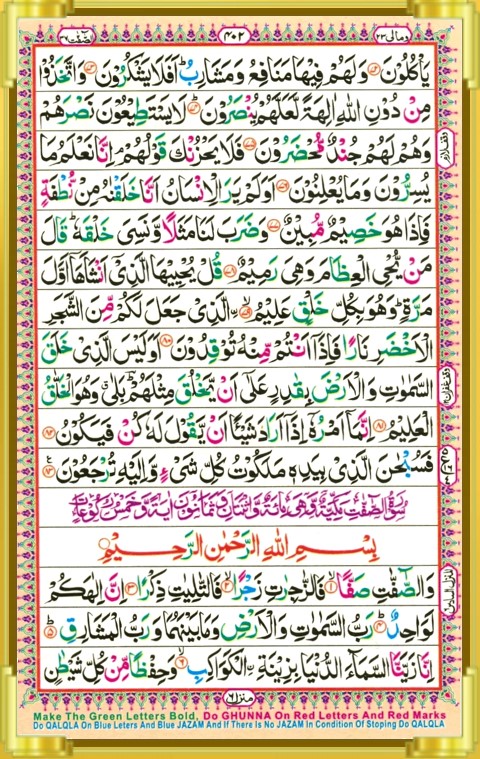 وَمَالِيَ ٢٣ ٤٠٢ الصّٰٓفّٰت ٣٧
يَاْكُلُوْنَ ﴿۷۲﴾ وَلَهُمْ فِيْهَا مَنَافِعُ وَمَشَارِبُ ؕ اَفَلَا يَشْكُرُوْنَ ﴿۷۳﴾ وَاتَّخَذُوْا
مِنْ دُوْنِ اللّٰهِ اٰلِهَةً لَّعَلَّهُمْ يُنْصَرُوْنَ ﴿۷۴﴾ لَا يَسْتَطِيْعُوْنَ نَصْرَهُمْ
وَهُمْ لَهُمْ جُنْدٌ مُّحْضَرُوْنَ ﴿۷۵﴾ فَلَا يَحْزُنْكَ قَوْلُهُمْ ۘ اِنَّا نَعْلَمُ مَا
يُسِرُّوْنَ وَمَا يُعْلِنُوْنَ ﴿۷۶﴾ اَوَلَمْ يَرَ الْاِنْسَانُ اَنَّا خَلَقْنٰهُ مِنْ نُّطْفَةٍ
فَاِذَا هُوَ خَصِيْمٌ مُّبِيْنٌ ﴿۷۷﴾ وَضَرَبَ لَنَا مَثَلًا وَّنَسِيَ خَلْقَهٗ ؕ قَالَ
مَنْ يُّحْيِ الْعِظَامَ وَهِيَ رَمِيْمٌ ﴿۷۸﴾ قُلْ يُحْيِيْهَا الَّذِيْٓ اَنْشَاَهَآ اَوَّلَ
مَرَّةٍ ؕ وَهُوَ بِكُلِّ خَلْقٍ عَلِيْمُ ﴿۷۹﴾ ۨالَّذِيْ جَعَلَ لَكُمْ مِّنَ الشَّجَرِ
الْاَخْضَرِ نَارًا فَاِذَآ اَنْتُمْ مِّنْهُ تُوْقِدُوْنَ ﴿۸۰﴾ اَوَلَيْسَ الَّذِيْ خَلَقَ
السَّمٰوٰتِ وَالْاَرْضَ بِقٰدِرٍ عَلٰٓى اَنْ يَّخْلُقَ مِثْلَهُمْ ؕ بَلٰى ۗ وَهُوَ الْخَلّٰقُ
الْعَلِيْمُ ﴿۸۱﴾ اِنَّمَآ اَمْرُهٗٓ اِذَآ اَرَادَ شَيْـًٔا اَنْ يَّقُوْلَ لَهٗ كُنْ فَيَكُوْنُ ﴿۸۲﴾
فَسُبْحٰنَ الَّذِيْ بِيَدِهٖ مَلَكُوْتُ كُلِّ شَيْءٍ وَّاِلَيْهِ تُرْجَعُوْنَ ﴿۸۳﴾
سُوْرَةُ الصّٰٓفّٰتِ مَكِّيَّةٌ وَّهِيَ مِائَةٌ وَّاثْنَتَانِ وَثَمَانُوْنَ اٰيَةً وَّخَمْسُ رُكُوْعَاتٍ
بِسْمِ اللّٰهِ الرَّحْمٰنِ الرَّحِيْمِ
وَالصّٰٓفّٰتِ صَفًّا ﴿۱﴾ فَالزّٰجِرٰتِ زَجْرًا ﴿۲﴾ فَالتّٰلِيٰتِ ذِكْرًا ﴿۳﴾ اِنَّ اِلٰهَكُمْ
لَوَاحِدٌ ﴿۴﴾ رَبُّ السَّمٰوٰتِ وَالْاَرْضِ وَمَا بَيْنَهُمَا وَرَبُّ الْمَشَارِقِ ﴿۵﴾
اِنَّا زَيَّنَّا السَّمَآءَ الدُّنْيَا بِزِيْنَةِ ۨالْكَوَاكِبِ ﴿۶﴾ وَحِفْظًا مِّنْ كُلِّ شَيْطٰنٍ
منزل ٦
Make The Green Letters Bold, Do GHUNNA On Red Letters And Red Marks
Do QALQLA On Blue Leters And Blue JAZAM And If There Is No JAZAM In Condition Of Stoping Do QALQLA